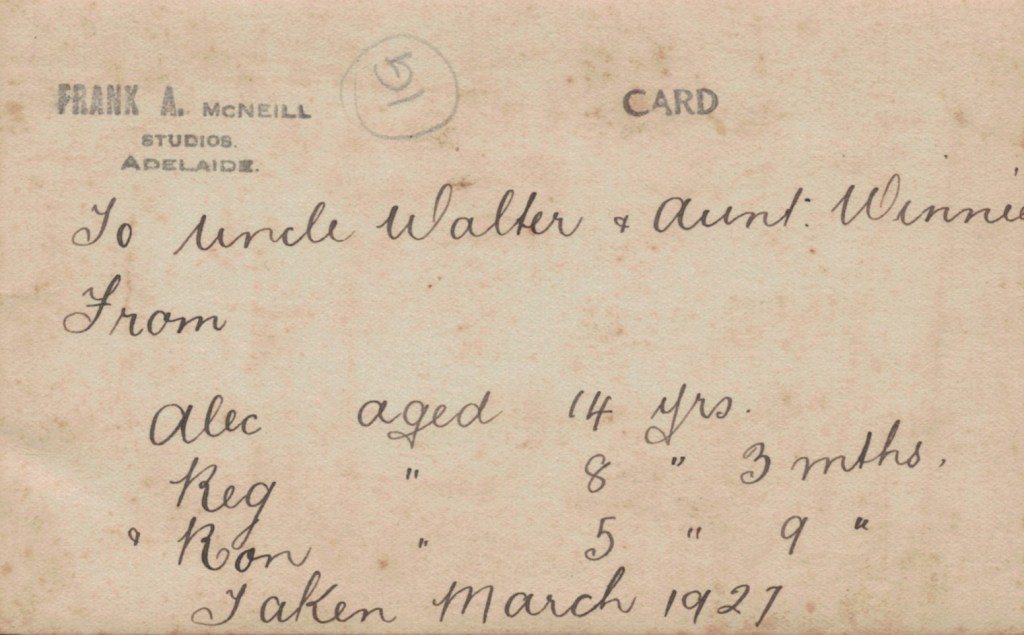 FRANK A. McNEILL
STUDIOS.
ADELAIDE.
51
CARD
To Uncle Walter & Aunt. Winnie
From
Alec aged 14 yrs.
Reg " 8 " 3 mths.
& Ron " 5 " 9 "
Taken March 1927